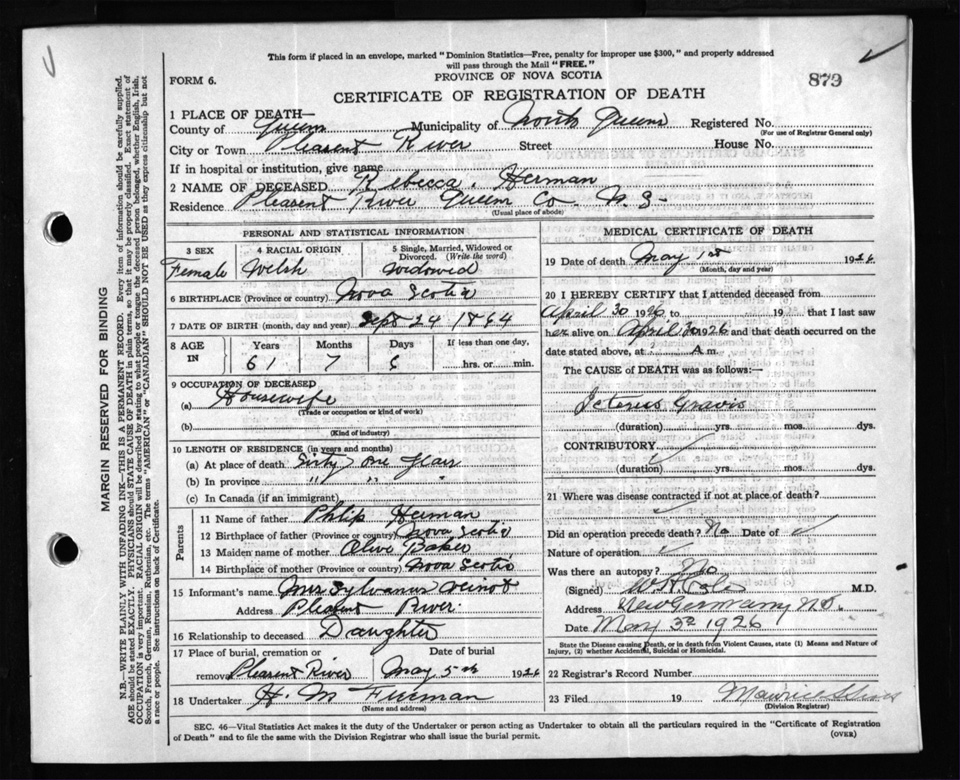 This form if placed in an envelope, marked "Dominion Statistics—Free, penalty for improper use $300," and properly addressed
will pass through the Mail "FREE."
FORM 6.
PROVINCE OF NOVA SCOTIA
879
CERTIFICATE OF REGISTRATION OF DEATH
1 PLACE OF DEATH—
County of Queens Municipality of North Queens Registered No.
(For use of Registrar General only)
City or Town Pleasent River Street House No.
If in hospital or institution, give name
2 NAME OF DECEASED Rebecca Herman
Residence Pleasent River Queens Co. N.S.
(Usual place of abode)
PERSONAL AND STATISTICAL INFORMATION
3 SEX
Female
4 RACIAL ORIGIN
Welsh
5 Single, Married, Widowed or
Divorced. (Write the word)
Widowed
6 BIRTHPLACE (Province or country) Nova Scotia
7 DATE OF BIRTH (month, day and year) Sept 24 1864
8 AGE IN Years Months Days If less than one day,
61 7 6 hrs. or min.
9 OCCUPATION OF DECEASED
(a) Housewife
(Trade or occupation or kind of work)
(b)
(Kind of industry)
10 LENGTH OF RESIDENCE (in years and months)
(a) At place of death Sixty one years
(b) In province " " "
(c) In Canada (if an immigrant)
Parents
11 Name of father Philip Herman
12 Birthplace of father (Province or country) Nova Scotia
13 Maiden name of mother Olive Baker
14 Birthplace of mother (Province or country) Nova Scotia
15 Informant's name Mrs Sylvanus Veinot
Address Pleasent River
16 Relationship to deceased Daughter
17 Place of burial, cremation or Date of burial
removal Pleasent River May 5th 1926
18 Undertaker H. M
(Name and address)
MEDICAL CERTIFICATE OF DEATH
19 Date of death May 1st 1926
(Month, day and year)
20 I HEREBY CERTIFY that I attended deceased from
April 30 1926 to 19 that I last saw
her alive on April 30 1926 and that death occurred on the
date stated above, at A m.
The CAUSE of DEATH was as follows:—
Icterus Gravis
(duration) yrs. mos. dys.
CONTRIBUTORY
(duration) yrs. mos. dys.
21 Where was disease contracted if not at place of death?
Did an operation precede death? No Date of
Nature of operation
Was there an autopsy? No
(Signed) M.D.
Address New Germany N.S.
Date May 3rd 1926
State the Disease causing Death, or in death from Violent Causes, state (1) Means and Nature of
Injury, (2) whether Accidental, Suicidal or Homicidal.
22 Registrar's Record Number
23 Filed 19 Maurice
(Division Registrar)
SEC. 46—Vital Statistics Act makes it the duty of the Undertaker or person acting as Undertaker to obtain all the particulars required in the "Certificate of Registration
of Death" and to file the same with the Division Registrar who shall issue the burial permit.
(OVER)
MARGIN RESERVED FOR BINDING
N.B.—WRITE PLAINLY WITH UNFADING INK—THIS IS A PERMANENT RECORD. Every item of information should be carefully supplied.
AGE should be stated EXACTLY. PHYSICIANS should STATE CAUSE OF DEATH in plain terms, so that it may be properly classified. Exact statement of
OCCUPATION is very important. RACIAL ORIGIN will be described by stating to what people or tongue the deceased person belonged, whether English, Irish,
Scotch, French, German, Russian, Ruthenian, etc. The terms "AMERICAN" or "CANADIAN" SHOULD NOT BE USED as they express citizenship but not
a race or people. See instructions on back of Certificate.